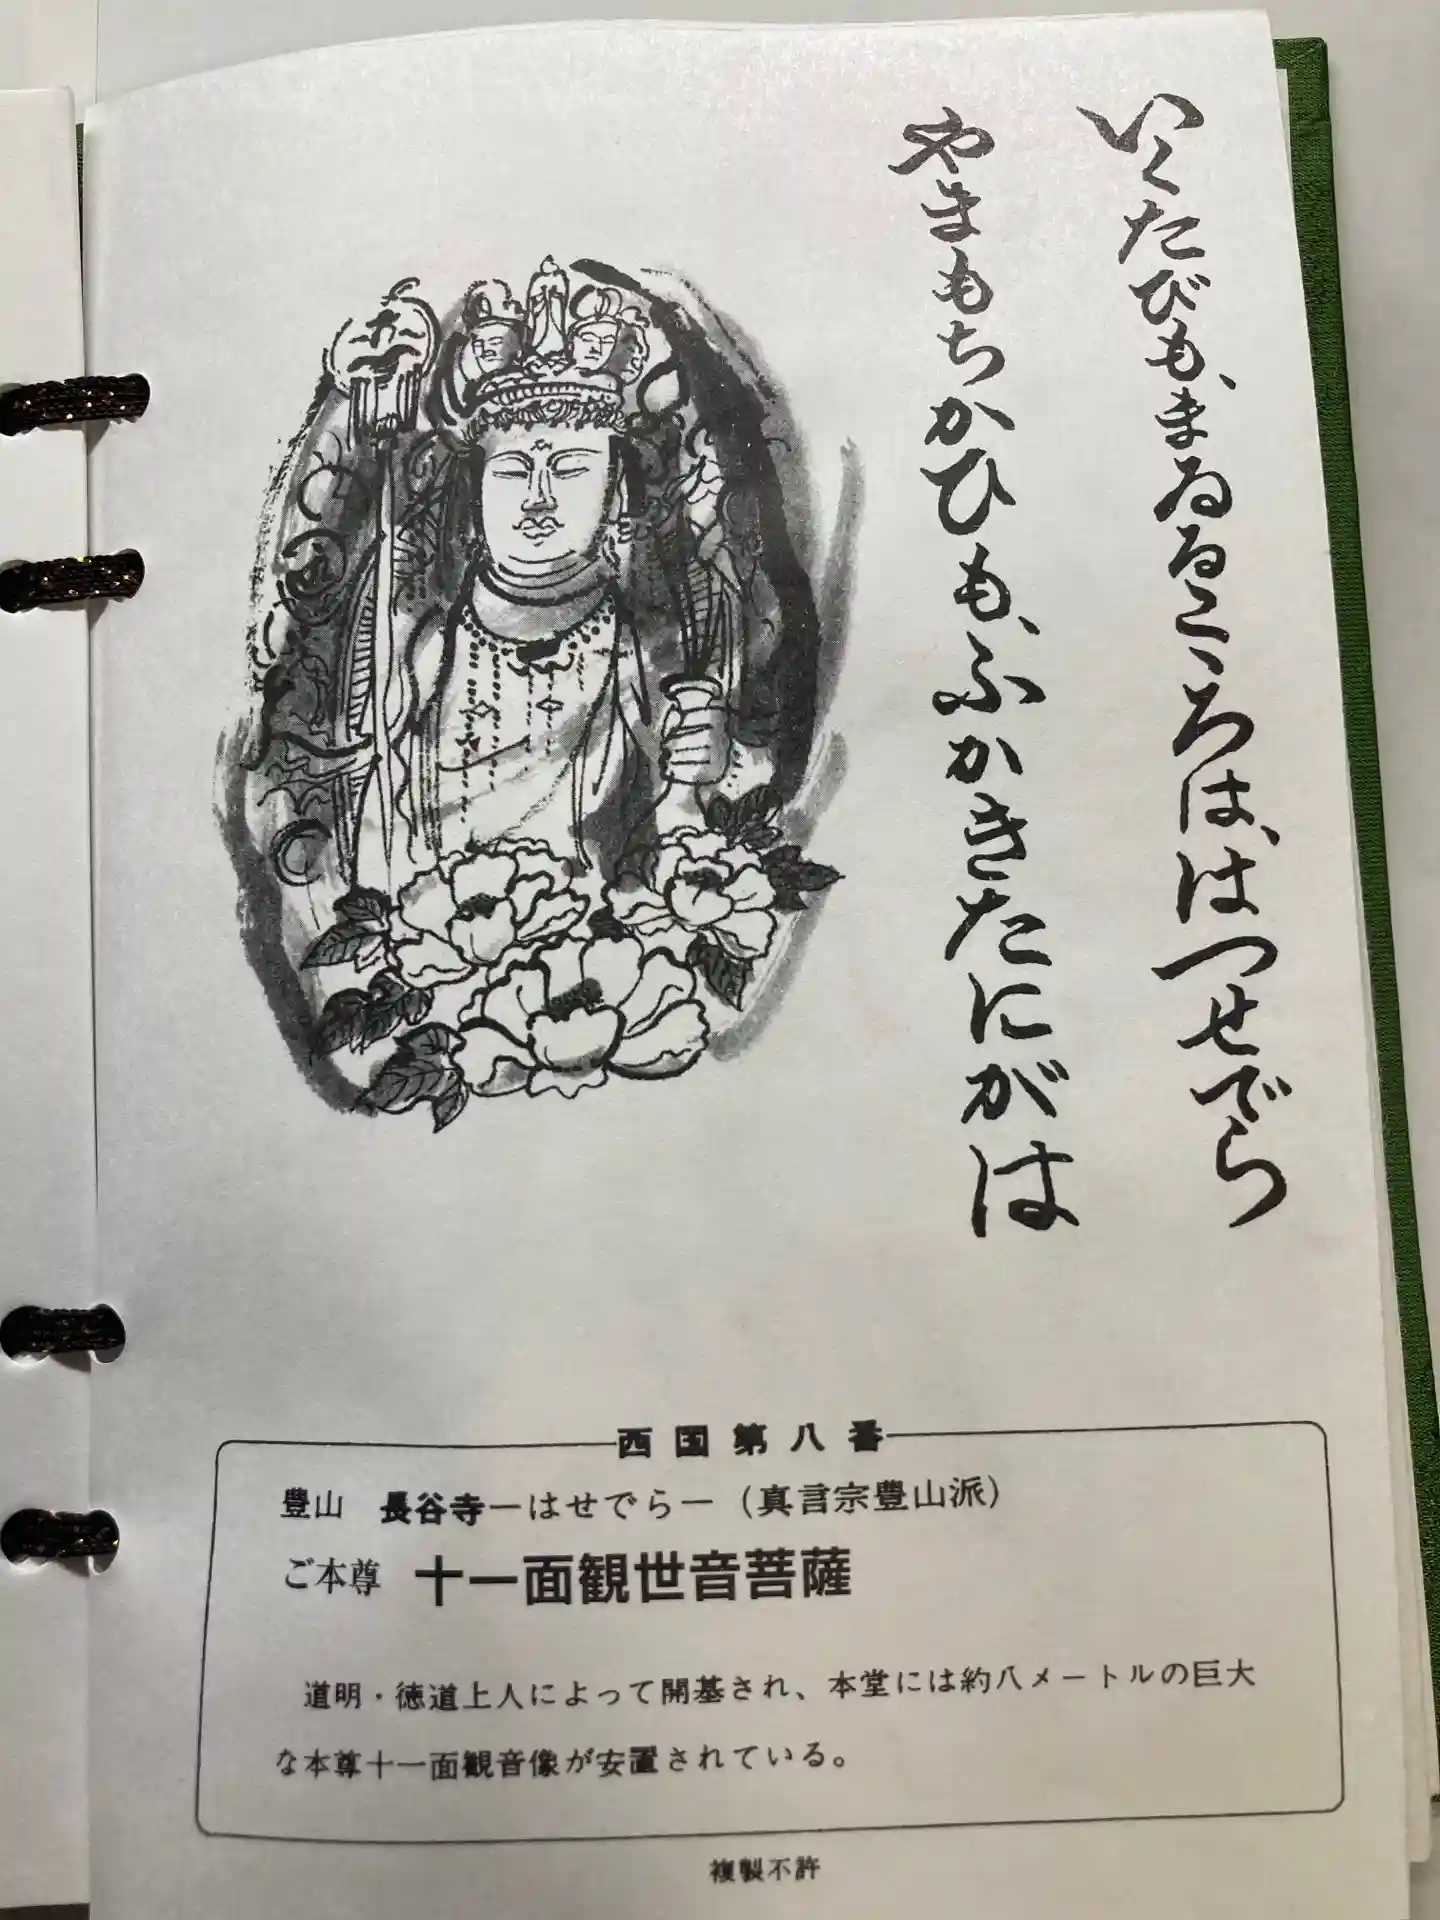 いくたびも、まゐるこゝろは、はつせでら
やまもちかひも、ふかきたにがは
西国第八番
豊山　長谷寺ーはせでらー（真言宗豊山派）
ご本尊　十一面観世音菩薩
道明・徳道上人によって開基され、本堂には約八メートルの巨大
な本尊十一面観音像が安置されている。
複製不許